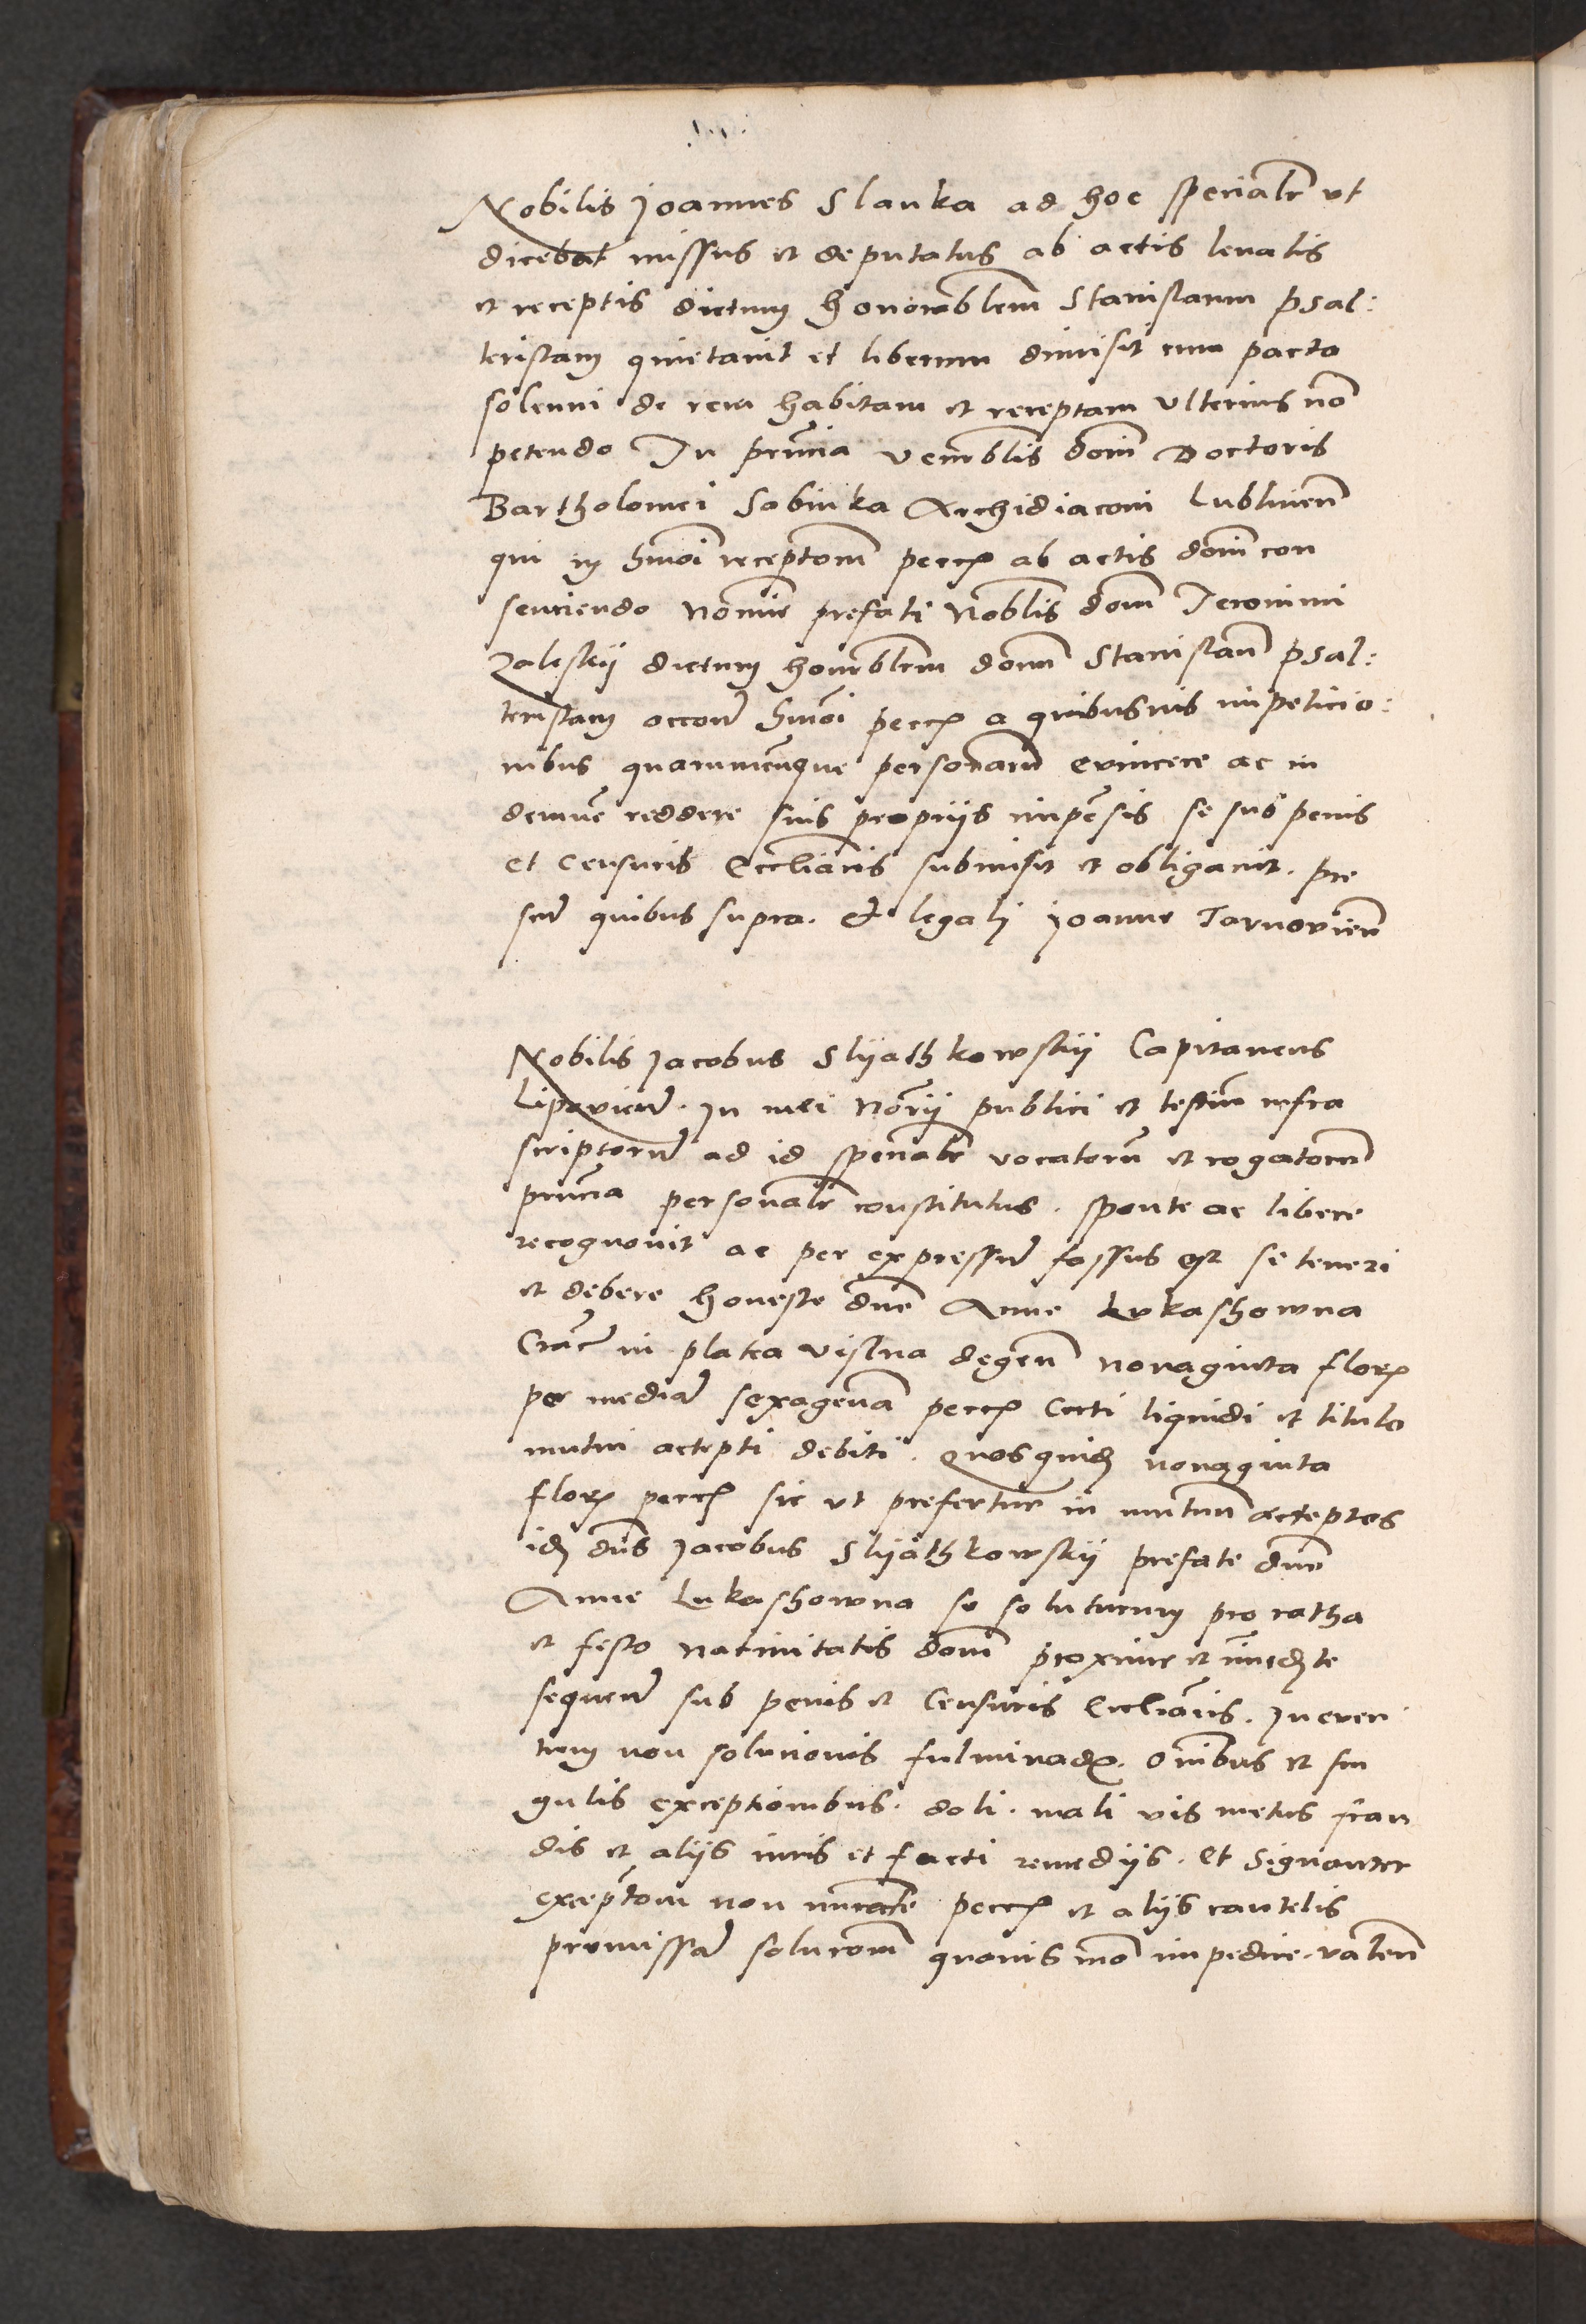 Nobilis Joannes Slauka ad hoc specialr̃ vt
dicebat missus et deputatus ab actis leuatis
et receptis dictum honorablem̃ Stanislaum psal:
teristam quietauit et liberum dimisit cum pacto
solenni de rem habitam et receptam vlterius nõ
petendo In pñcia venerblis dom̃ Doctoris
Bartholomei Sabinka Archidiaconi Lublineñ
qui in hmõi receptom̃ peccȩ ab actis dom̃ con
senciendo nomĩe prefati Noblis dom̃ Jeronimi
Zaleskij dictum honorblem̃ dom̃ Stanislaũ psal:
teristam occoñe hmõi peccȩ a quibusuis impeticio:
nibus quarumcũque personarũ euincere ac in
demnẽ reddere suis proprijs impẽsis se sub penis
et censuris Eccliãcis submisit et obligauit. pre
señ quibus supra. et legali Joanne Tarnovieñ
Nobilis Jacobus Slyathkowskij Capitaneus
Lipovieñ. In mei Nõrij publici et testiũ infra
scriptorũ ad id specialr̃ vocatorũ et rogatorum̃
pñcia personalr̃ constitutus. sponte ac libere
recognouit ac per expressũ fassus est se teneri
et debere honeste dnẽ Anne Lukashowna
Crac̃ in platea vislna degeñ nonaginta florȩ
per mediã sexagenã peccȩ Certi liquidi et titulo
mutui accepti debiti. Quos quidȩ nonaginta
florȩ peccȩ sic vt prefertur in mutuũ acceptos
idȩ dñs Jacobus Slyathkowskij prefate dnẽ
Anne Lukashowna se soluturum pro ratha
et festo natiuitatis dom̃ proxime et im̃edȩte
sequeñ sub penis et Censuris Eccliãcis. In euen
tum non solucionis fulminadȩ. Om̃ibus et sin
gulis exceptionibus. doli. mali vis metus frau
dis et alijs iuris et facti remedijs. et signanter
exceptom̃ non nũcrate peccȩ et alijs cautelis
premissã solucom̃ quouis mõ impedire. valeñ